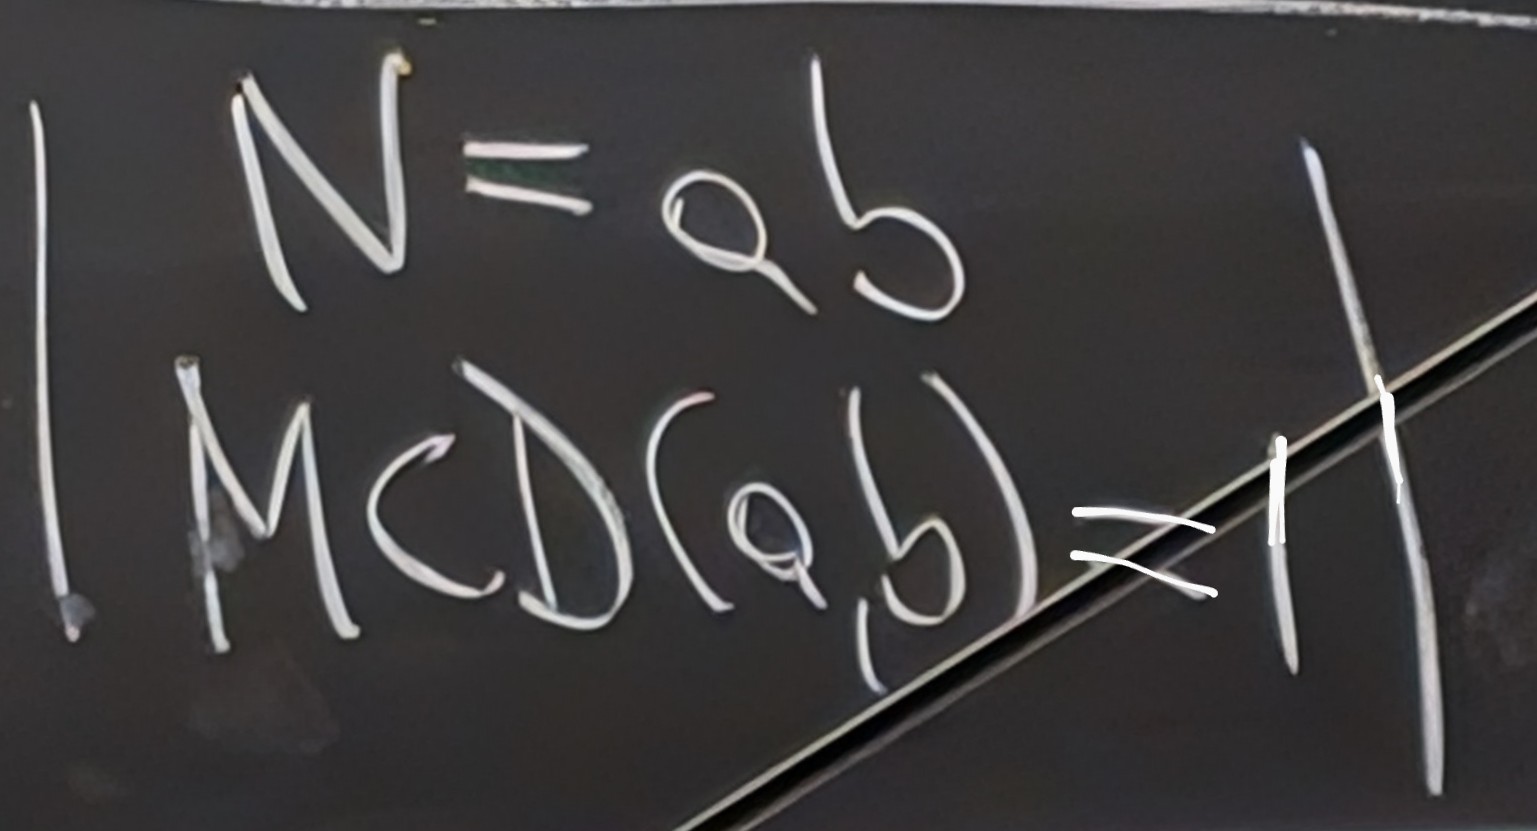 | N = ab |
MCD(a,b) = 1